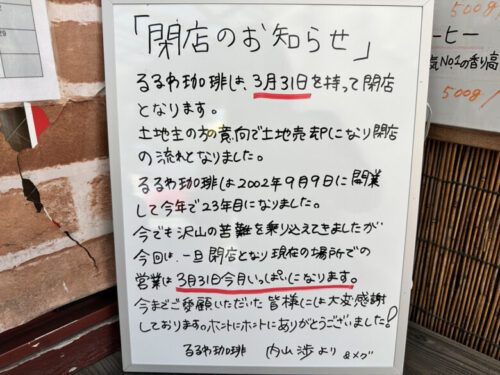 「閉店のお知らせ」
るるわ珈琲は、3月31日を持って閉店
となります。
土地主の方の意向で土地売却になり閉店
の流れとなりました。
るるわ珈琲は2002年9月9日に開業
して今年で23年目になりました。
今でも沢山の苦難を乗り込えてきましたが
今回は、一旦閉店となり現在の場所での
営業は3月31日今月いっぱいになります。
今までご愛顧いただいた皆様には大変感謝
しております。ホントにホントにありがとうございました!
るるわ珈琲 内山渉より &メグ
500g
ーヒー
気No.1の香り高
500g/